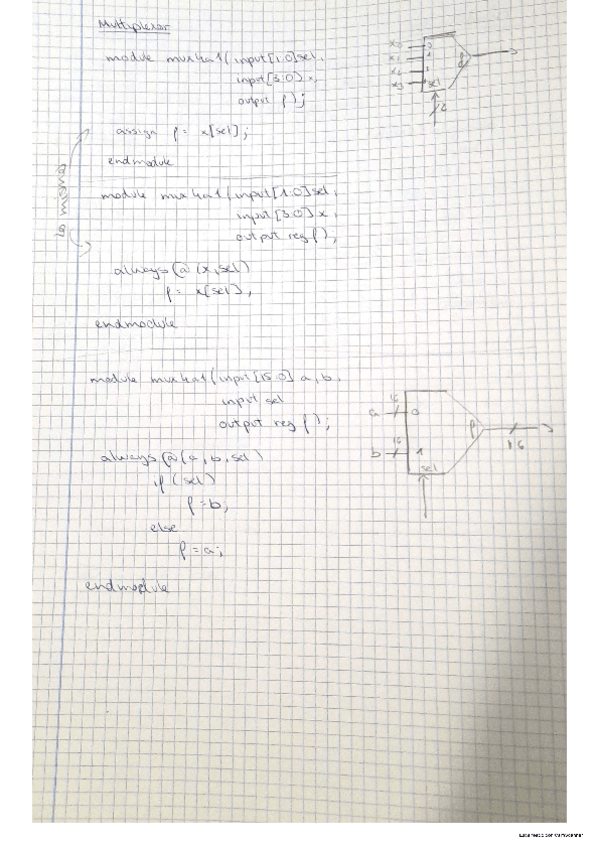 Multiplexor
module mux4a1(input[1:0]sel,
input[3:0] x,
output f);
assign f = x[sel];
endmodule
x0
x1
x2
x3
0
1
sel
f
2
module mux4a1(input[1:0]sel,
input[3:0] x,
output reg f);
always@(x,sel)
f = x[sel];
endmodule
module mux4a1(input[15:0] a,b,
input sel
output reg f);
always@(a,b,sel)
if(sel)
f=b;
else
f=a;
endmodule
a 16 0
b 16 1
sel
f
16